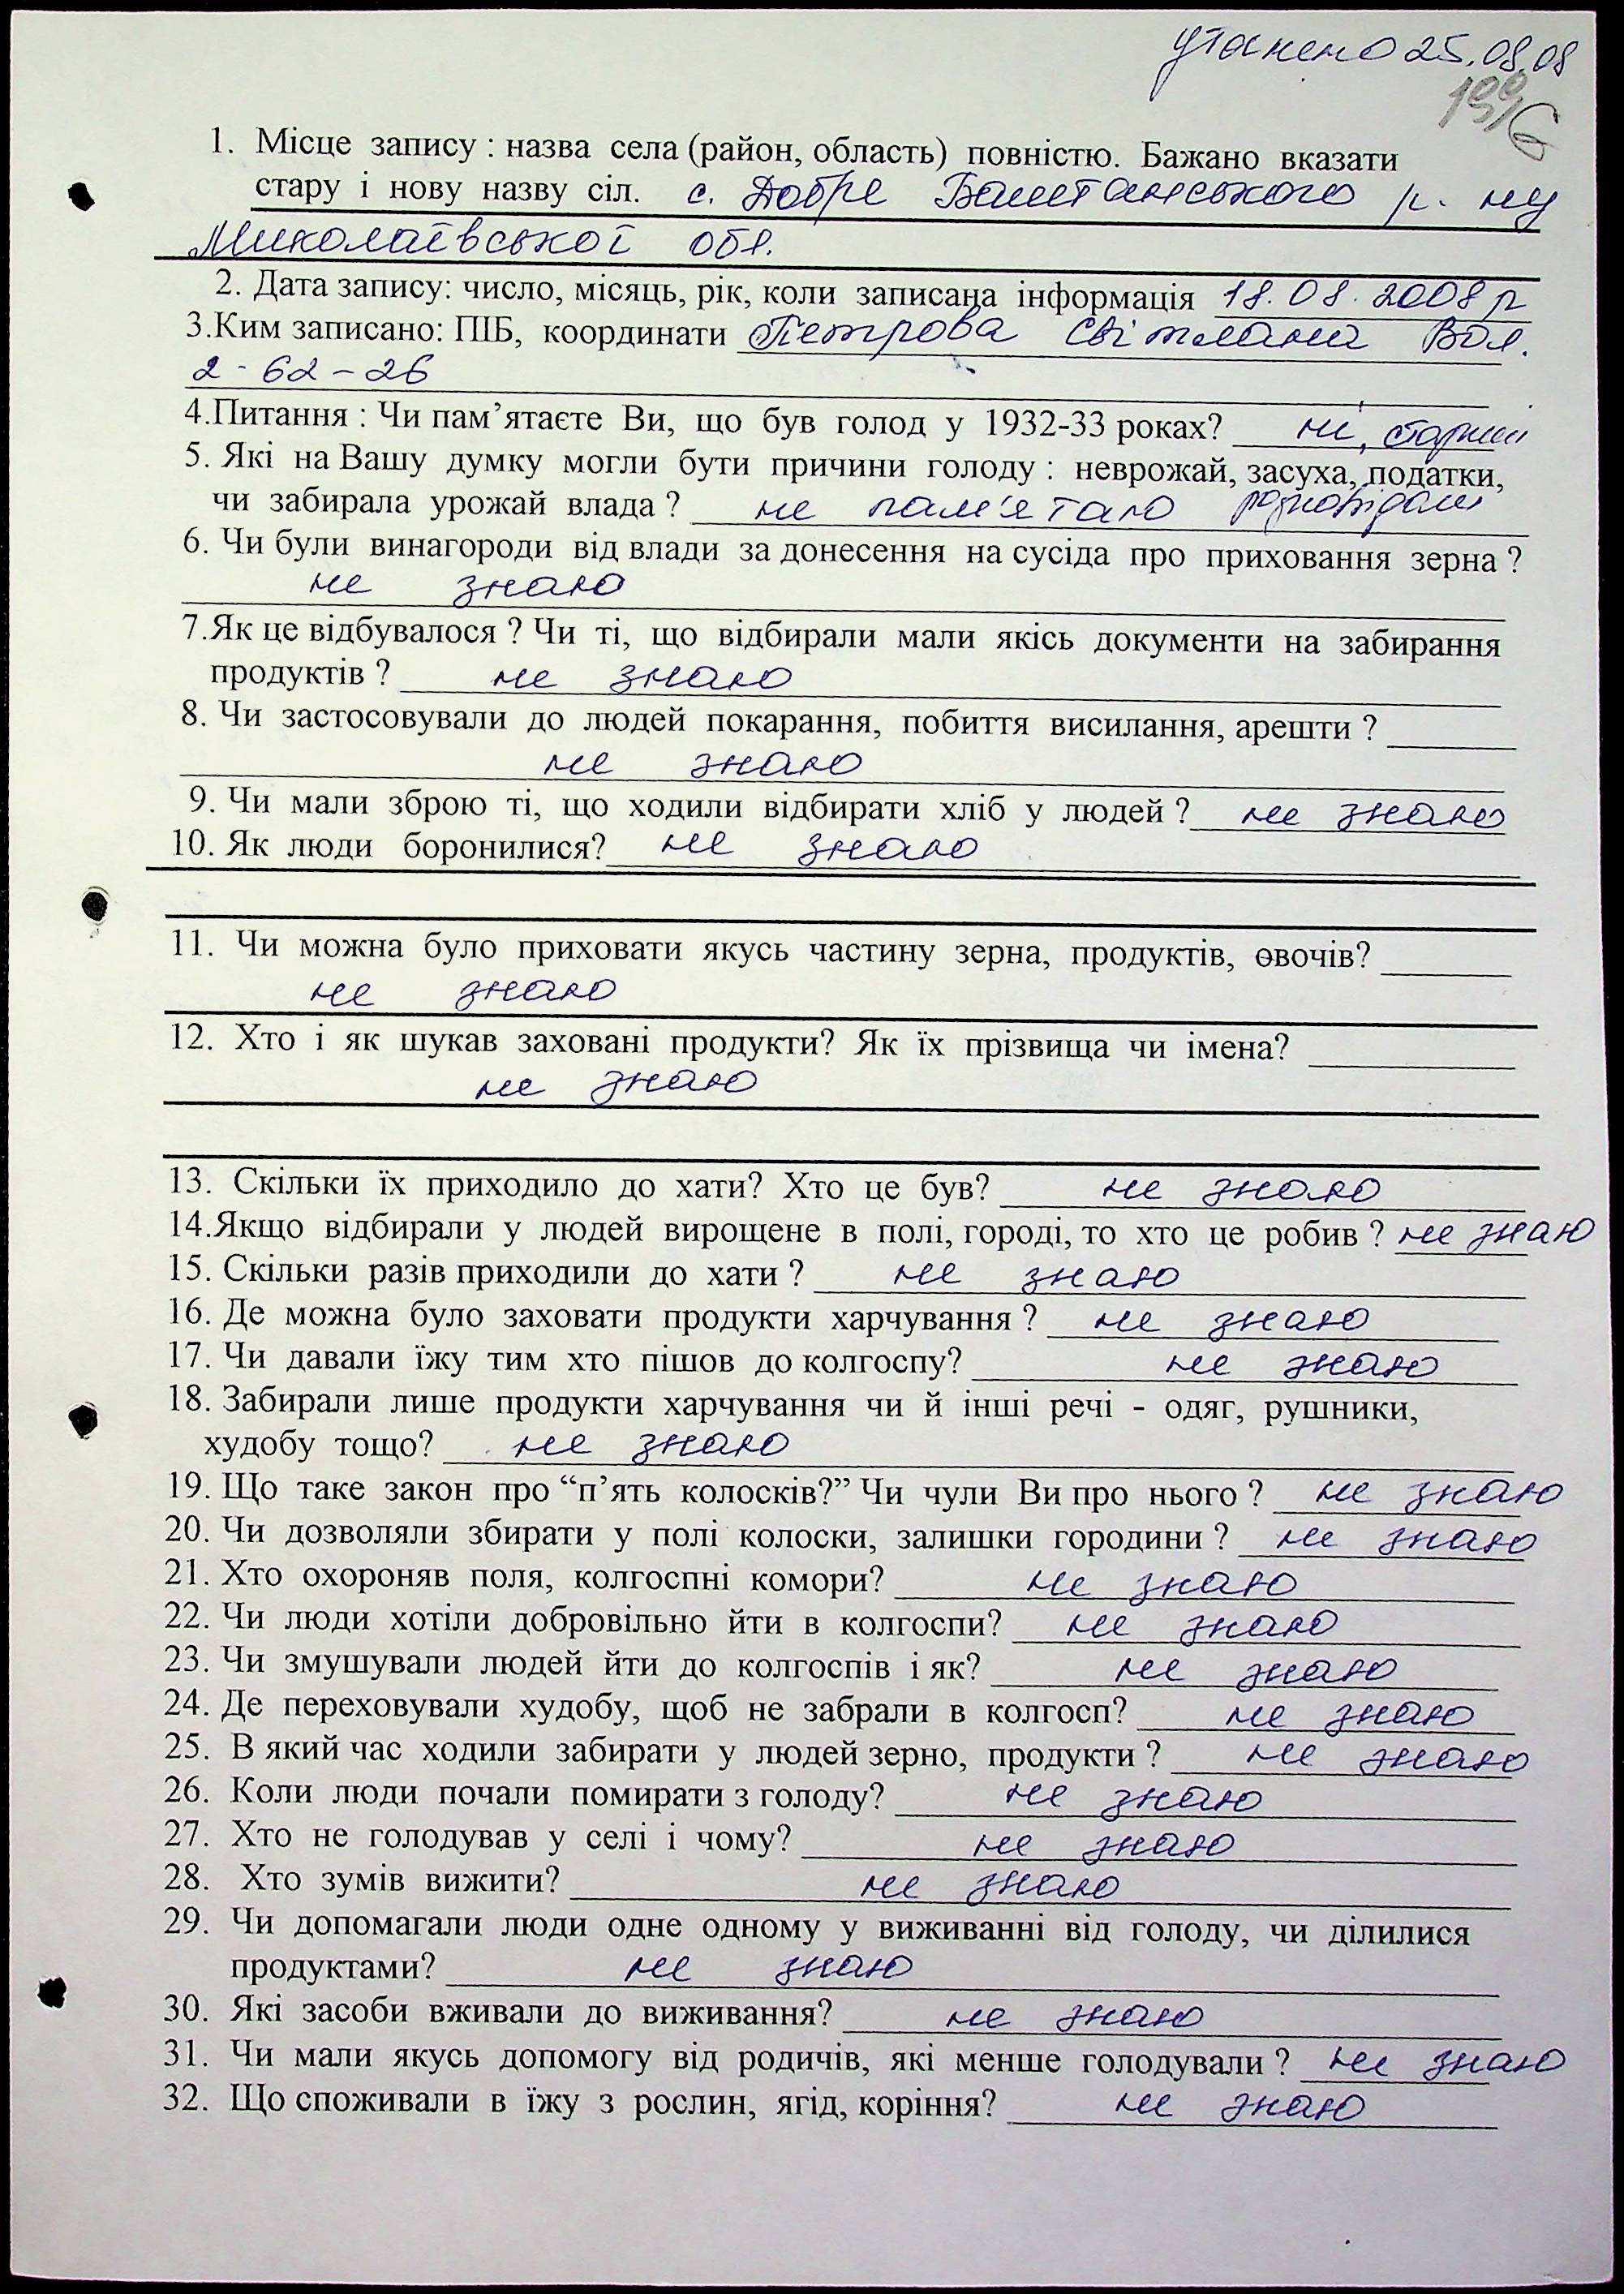 25.08.08
1. Місце запису : назва села (район, область) повністю. Бажано вказати
стару і нову назву сіл. с. Добре Баштанського р. ну
Миколаївської обл.
2. Дата запису: число, місяць, рік, коли записана інформація 18.08.2008 р
3.Ким записано: ПІБ, координати Петрова Світлана Вол.
2-62-26
4.Питання : Чи пам’ятаєте Ви, що був голод у 1932-33 роках? ні, старші
5. Які на Вашу думку могли бути причини голоду : неврожай, засуха, податки,
чи забирала урожай влада ? не пам'ятаю розповідали
6. Чи були винагороди від влади за донесення на сусіда про приховання зерна ?
не знаю
7.Як це відбувалося ? Чи ті, що відбирали мали якісь документи на забирання
продуктів ? не знаю
8. Чи застосовували до людей покарання, побиття висилання, арешти ?
не знаю
9. Чи мали зброю ті, що ходили відбирати хліб у людей ? не знаю
10. Як люди боронилися? не знаю
11. Чи можна було приховати якусь частину зерна, продуктів, овочів?
не знаю
12. Хто і як шукав заховані продукти? Як їх прізвища чи імена?
не знаю
13. Скільки їх приходило до хати? Хто це був? не знаю
14.Якщо відбирали у людей вирощене в полі, городі, то хто це робив ? не знаю
15. Скільки разів приходили до хати ? не знаю
16. Де можна було заховати продукти харчування ? не знаю
17. Чи давали їжу тим хто пішов до колгоспу? не знаю
18. Забирали лише продукти харчування чи й інші речі - одяг, рушники,
худобу тощо? не знаю
19. Що таке закон про “п’ять колосків?” Чи чули Ви про нього ? не знаю
20. Чи дозволяли збирати у полі колоски, залишки городини ? не знаю
21. Хто охороняв поля, колгоспні комори? не знаю
22. Чи люди хотіли добровільно йти в колгоспи? не знаю
23. Чи змушували людей йти до колгоспів і як? не знаю
24. Де переховували худобу, щоб не забрали в колгосп? не знаю
25. В який час ходили забирати у людей зерно, продукти ? не знаю
26. Коли люди почали помирати з голоду? не знаю
27. Хто не голодував у селі і чому? не знаю
28. Хто зумів вижити? не знаю
29. Чи допомагали люди одне одному у виживанні від голоду, чи ділилися
продуктами? не знаю
30. Які засоби вживали до виживання? не знаю
31. Чи мали якусь допомогу від родичів, які менше голодували ? не знаю
32. Що споживали в їжу з рослин, ягід, коріння? не знаю